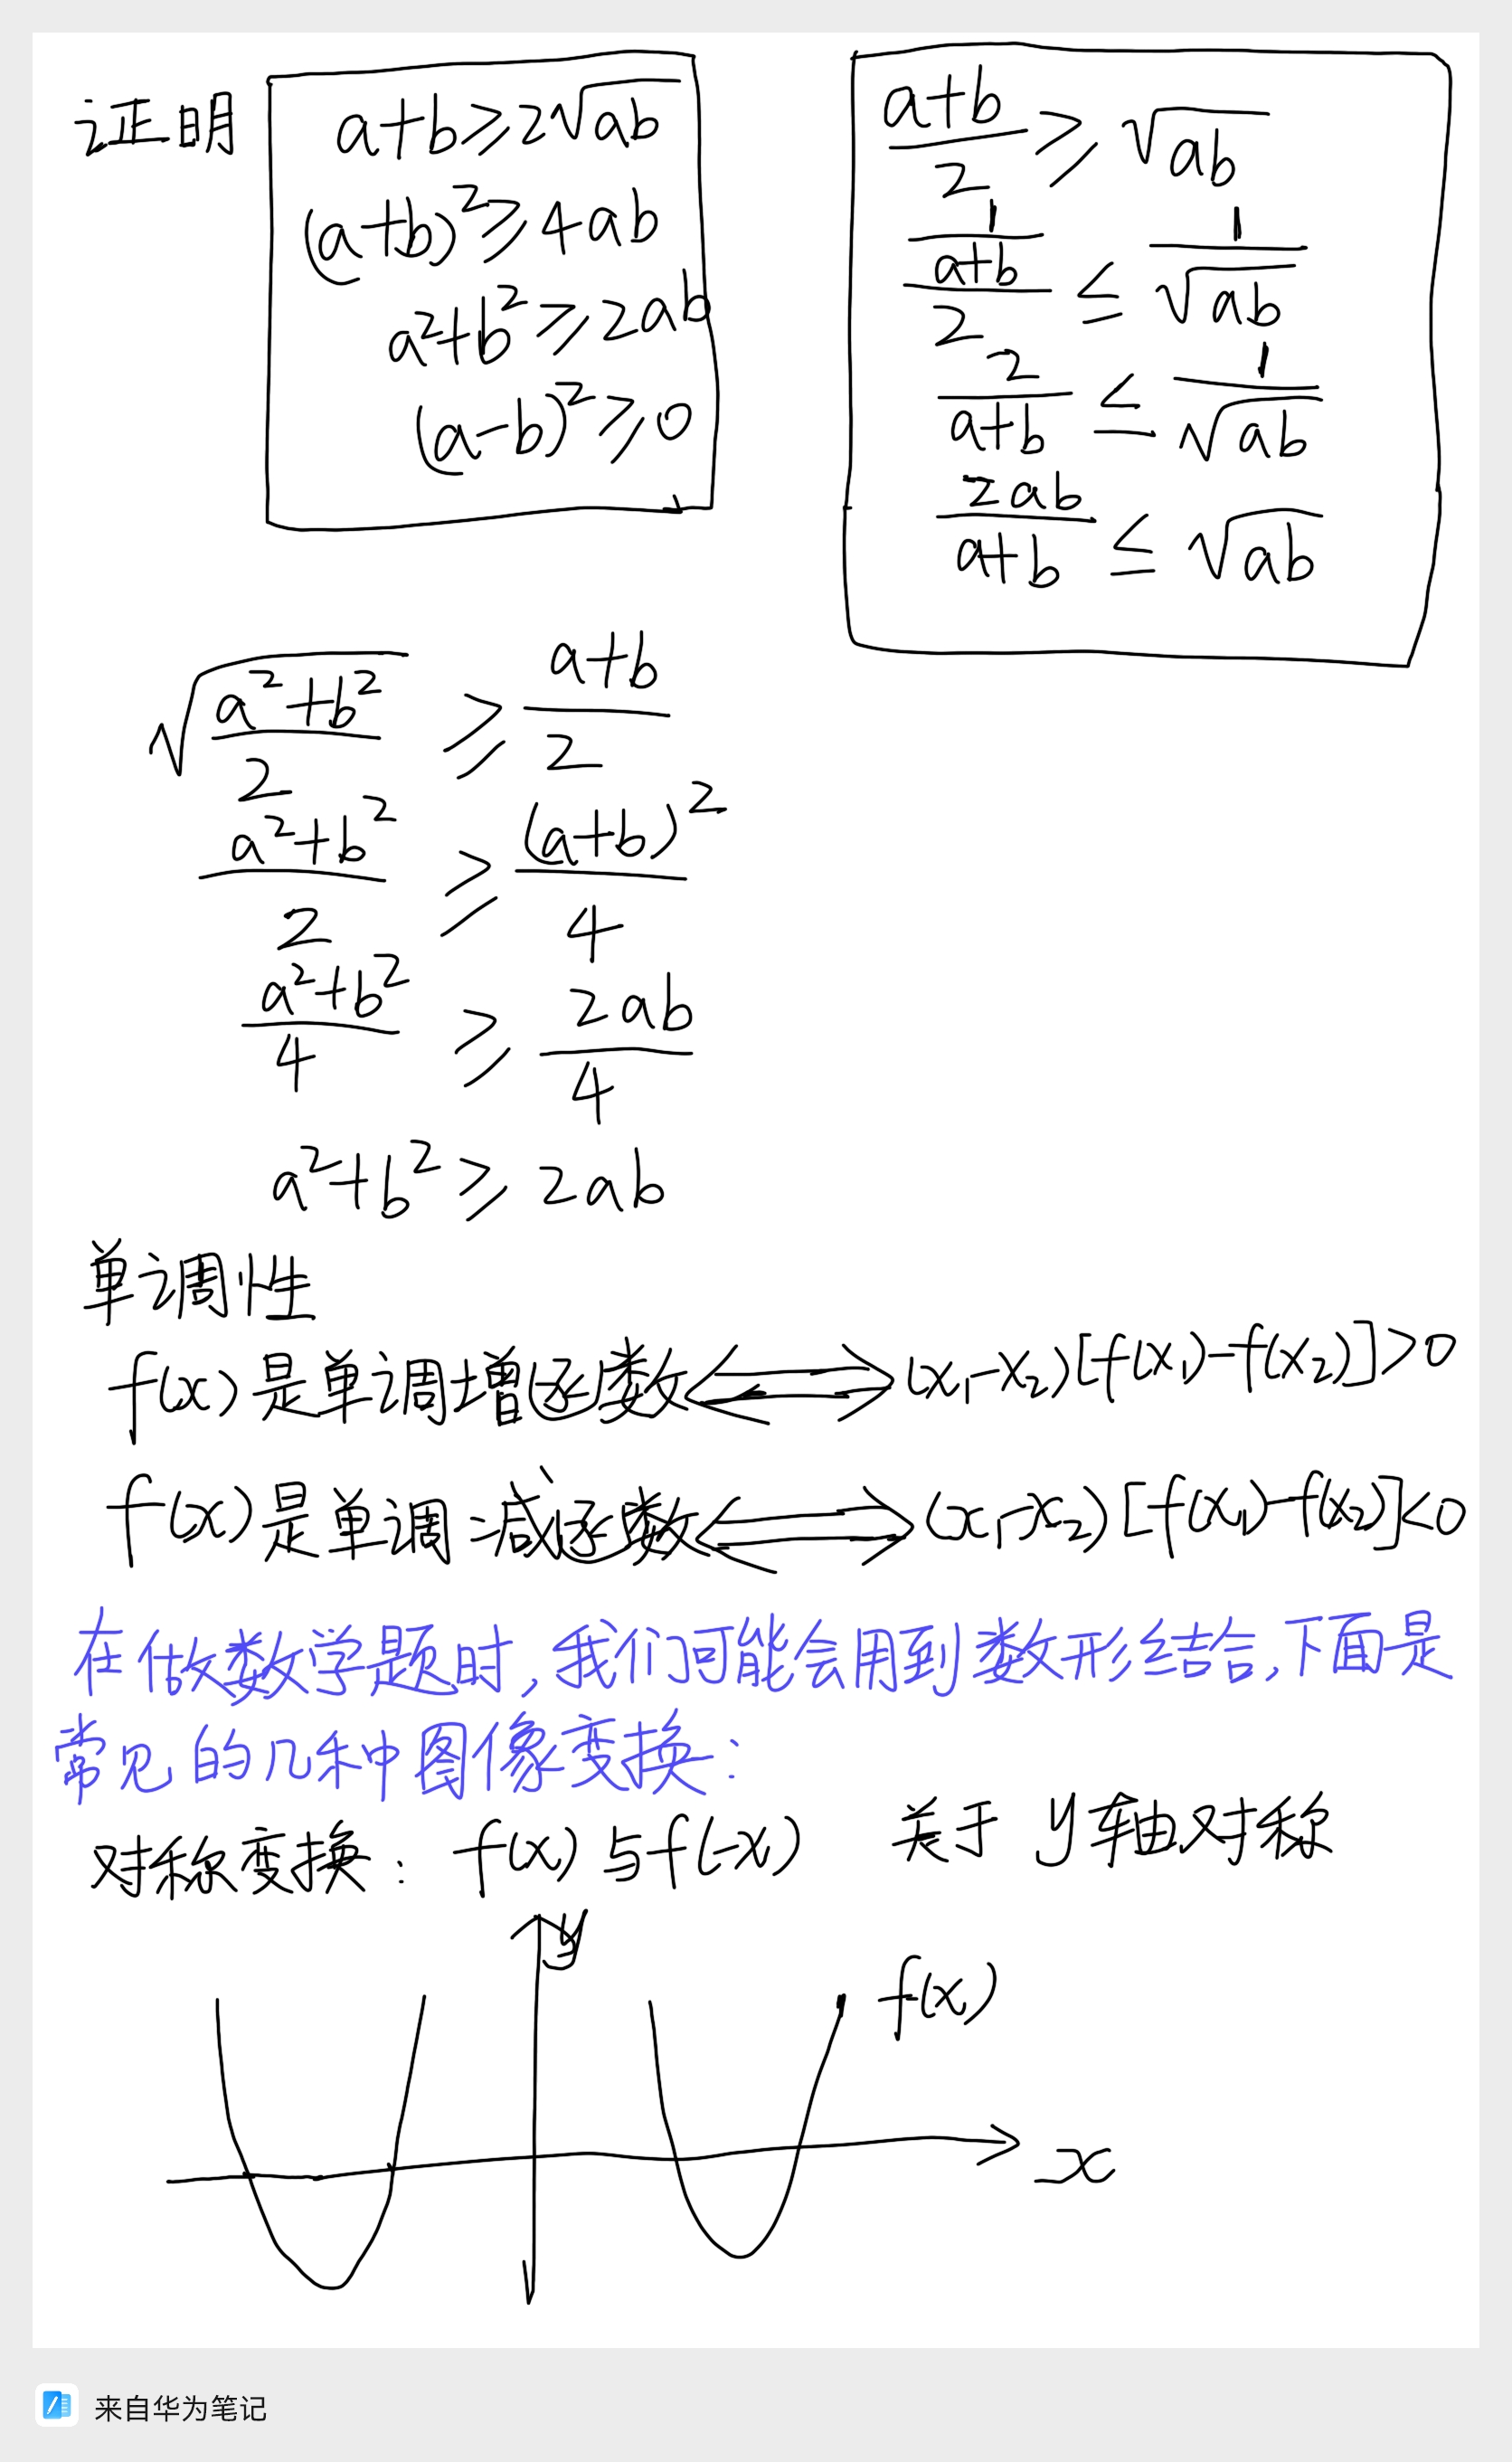 证明
a+b≥2√ab
(a+b)²≥4ab
a²+b²≥2ab
(a-b)²≥0
(a+b)/2 ≥ √ab
1/((a+b)/2) ≤ 1/√ab
2/(a+b) ≤ 1/√ab
2ab/(a+b) ≤ √ab
√((a²+b²)/2) ≥ (a+b)/2
(a²+b²)/2 ≥ (a+b)²/4
(a²+b²)/4 ≥ 2ab/4
a²+b²≥2ab
单调性
f(x)是单调增函数⟺(x₁-x₂)[f(x₁)-f(x₂)]>0
f(x)是单调减函数⟺(x₁-x₂)[f(x₁)-f(x₂)]<0
在做数学题时,我们可能会用到数形结合,下面是
常见的几种图像变换:
对称变换: f(x)与f(-x) 关于y轴对称
y
f(x)
x
来自华为笔记